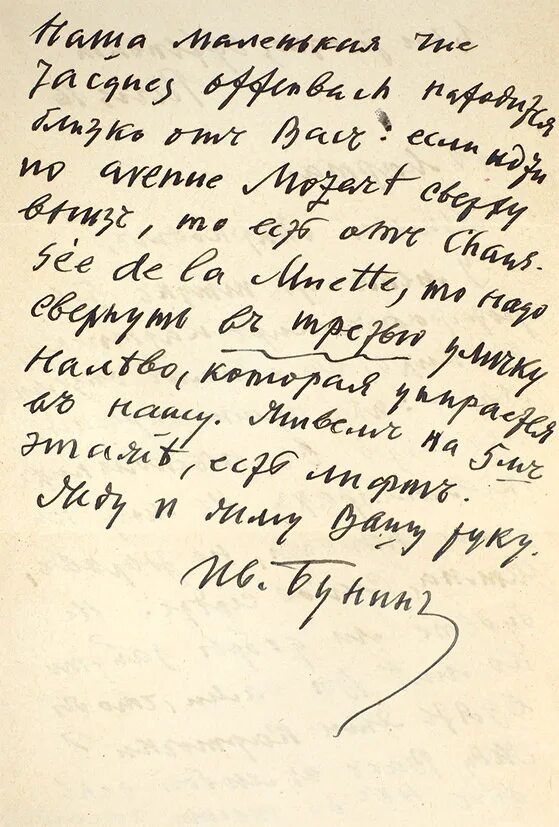 Наша маленькая rue
Jacques Offenbach находится
близко отъ Васъ: если идти
по avenue Mozart сверху
внизъ, то есть отъ Chaus-
sée de la Muette, то надо
свернуть въ третью уличку
налѣво, которая упирается
въ нашу. Живемъ на 5мъ
этажѣ, есть лифтъ.
Жду и жму Вашу руку.
Ив. Бунинъ